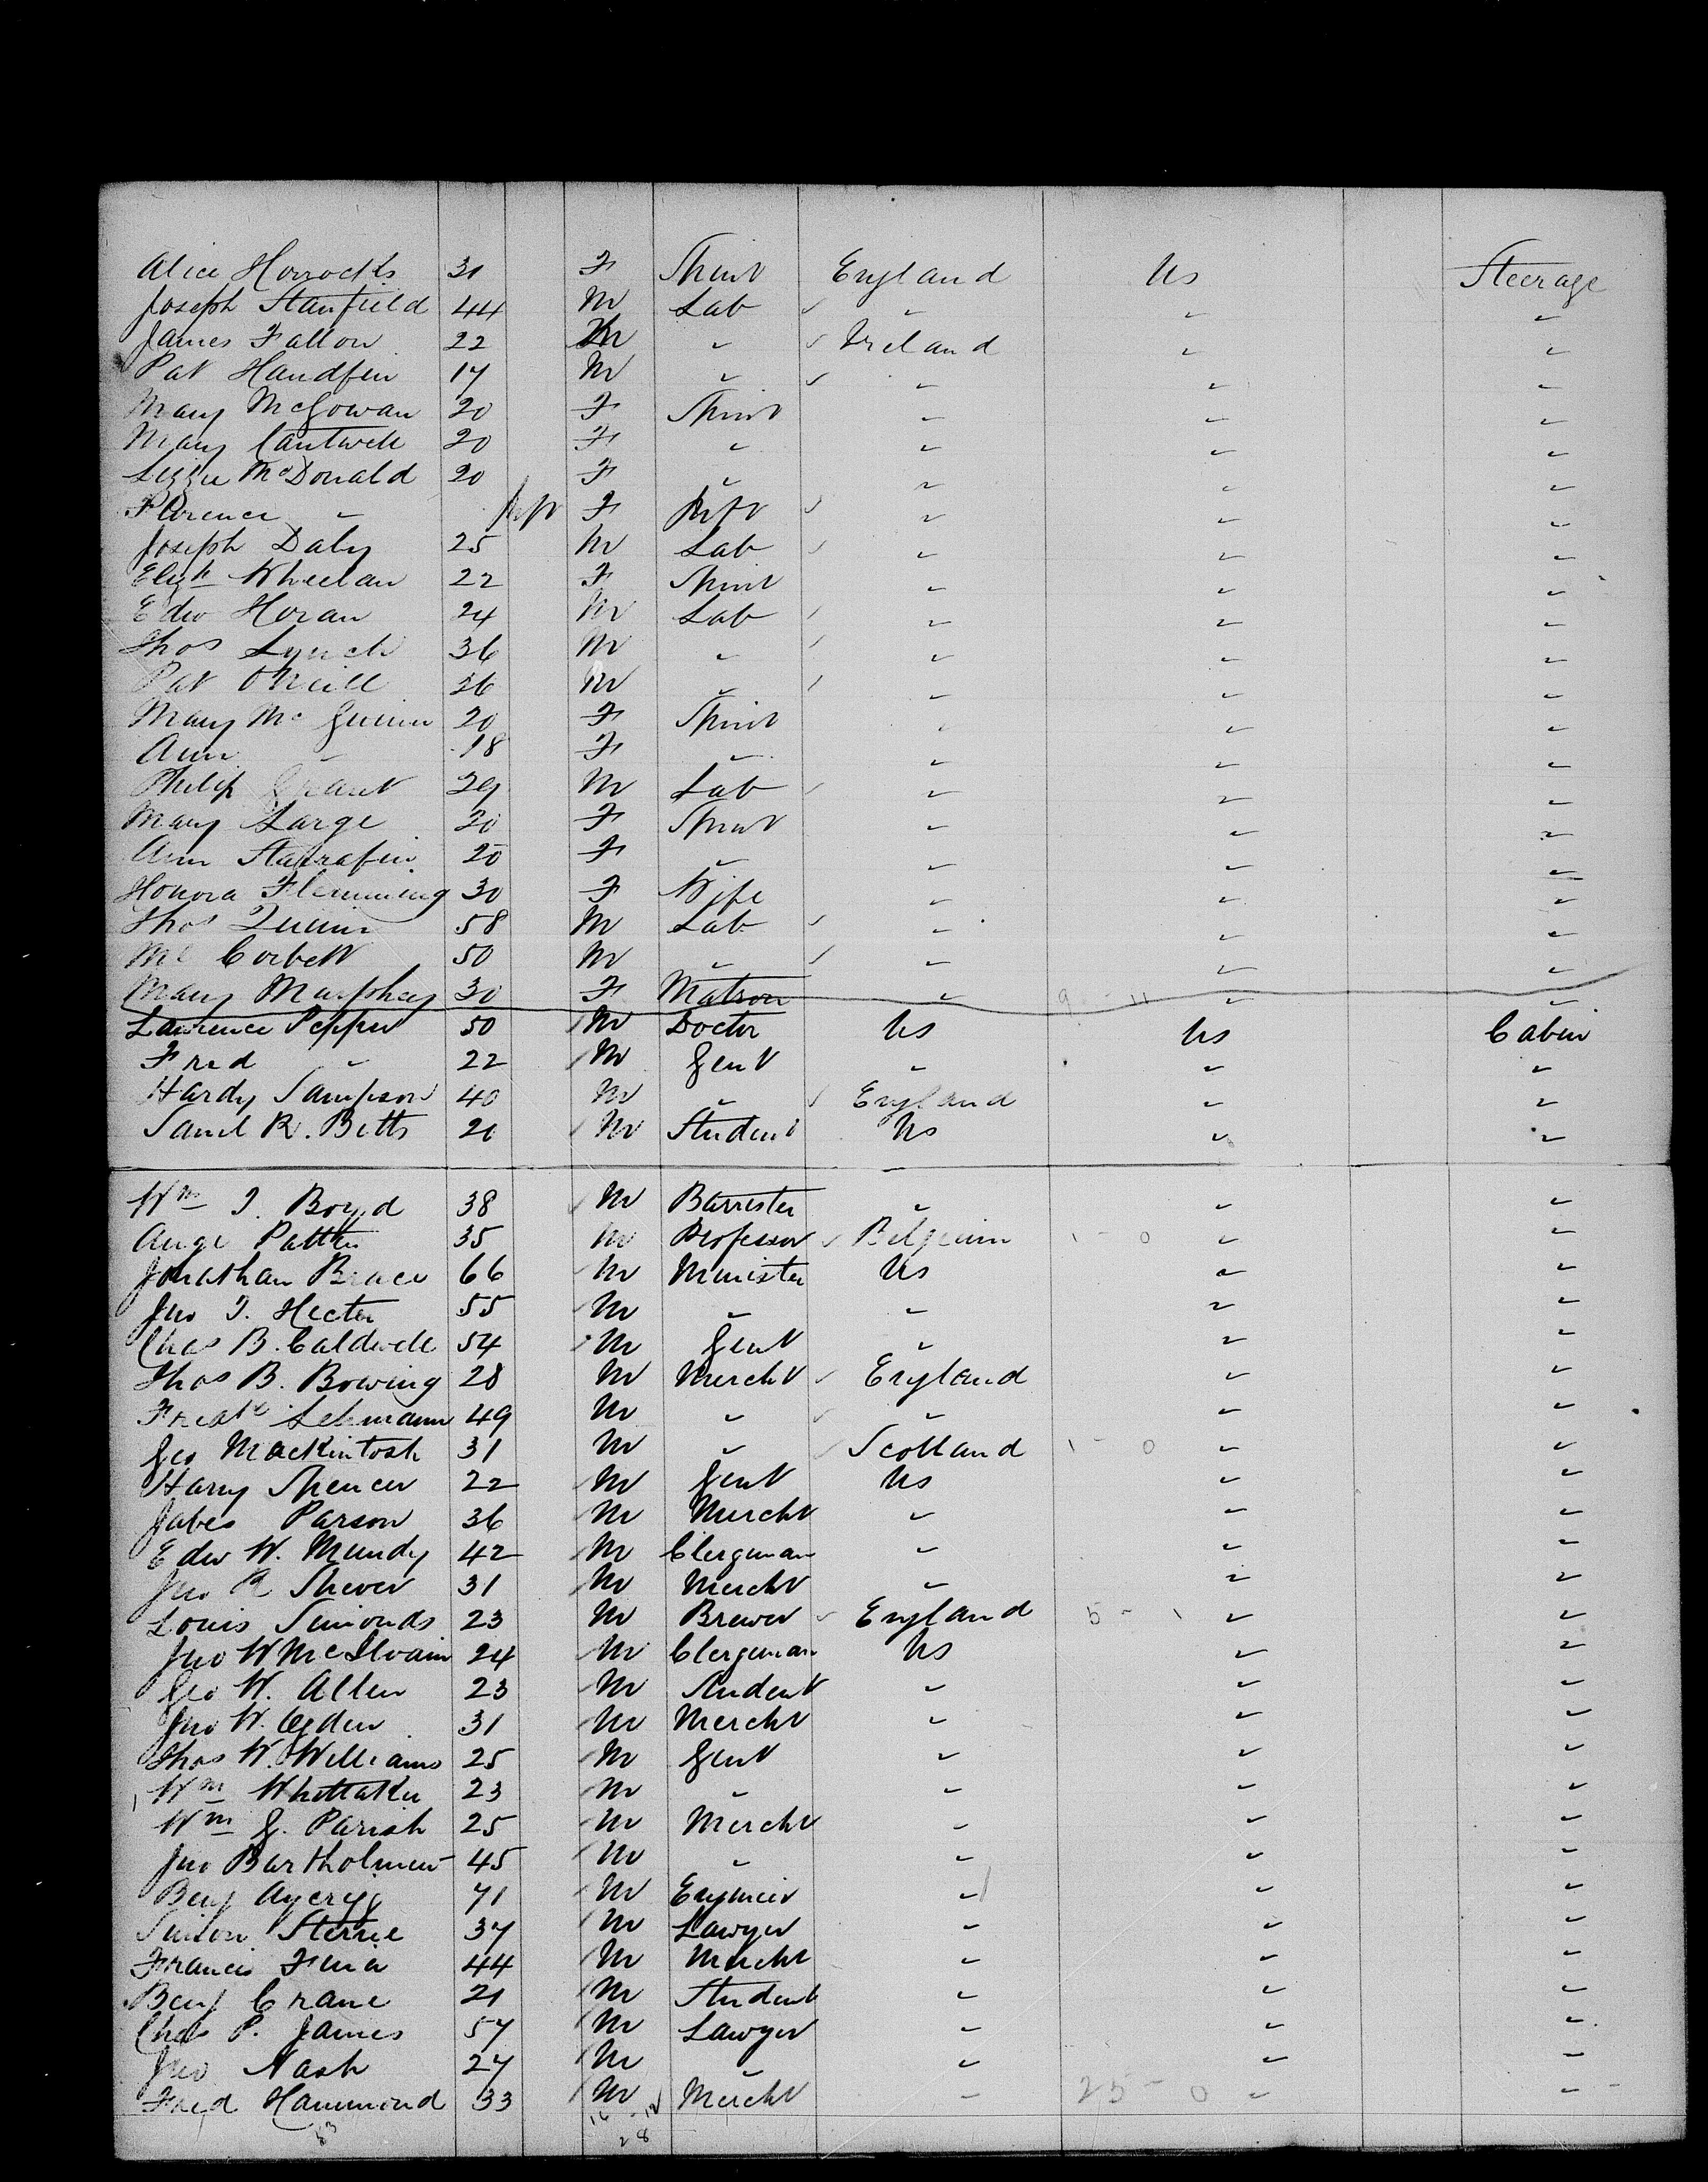 Alice Horrocks 31 F Spins England Us Steerage
Joseph Stanfield 44 M Lab " " "
James Fallon 22 M " Ireland " "
Pat Handfin 17 M " " " "
Mary McGowan 20 F Spins " " "
Mary Cantwell 20 F " " " "
Lizzie McDonald 20 F " " " "
Florence " Inft F Inft " " "
Joseph Daly 25 M Lab " " "
Elizh Wheelan 22 F Spins " " "
Edw Horan 24 M Lab " " "
Thos Lynch 36 M " " " "
Pat ONeill 36 M " " " "
Mary Mc Guinn 20 F Spins " " "
Ann " 18 F " " " "
Philip Grant 29 M Lab " " "
Mary Large 20 F Spins " " "
Ann 20 F " " " "
Honora Flemming 30 F Wife " " "
Thos Quinn 58 M Lab " " "
Ml Corbett 50 M " " " "
Mary Murphey 30 F Matron " 9 - 11 " "
Lawrence Pepper 50 M Doctor Us Us Cabin
Fred " 22 M Gent " " "
Hardy Sampson 40 M " England " "
Saml R. Betts 20 M Student Us " "
Wm T. Boyd 38 M Barrister " " "
Auge 35 M Professor Belgium 1 - 0 " "
Jonathan Brace 66 M Minister Us " "
Jno T. Hecter 55 M " " " "
Chas B. Caldwell 54 M Gent " " "
Thos B. Bowing 28 M Mercht England " "
Fredk Lehmann 49 M " " " "
Geo Mackintosh 31 M " Scotland 1 - 0 " "
Harry Spencer 22 M Gent Us " "
Jabes Parson 36 M Mercht " " "
Edw W. Mundy 42 M Clergyman " " "
Jno R Shever 31 M Mercht " " "
Louis Simonds 23 M Brewer England 5 - 1 " "
Jno W McIlvain 24 M Clergyman Us " "
Geo W. Allen 23 M Student " " "
Jno W. Ogden 31 M Mercht " " "
Thos W. Williams 25 M Gent " " "
Wm Whittaker 23 M " " " "
Wm G. Parish 25 M Mercht " " "
Jno Bartholmew 45 M " " " "
Benj Aycrigg 71 M Engineer " " "
Simon Sterne 37 M Lawyer " " "
Francis 44 M Mercht " " "
Benj Crane 21 M Student " " "
Chas P. James 57 M Lawyer " " "
Jno Nash 27 M " " " "
Fred Hammond 33 M Mercht " 25 - 0 " "
83 16 - 12
28